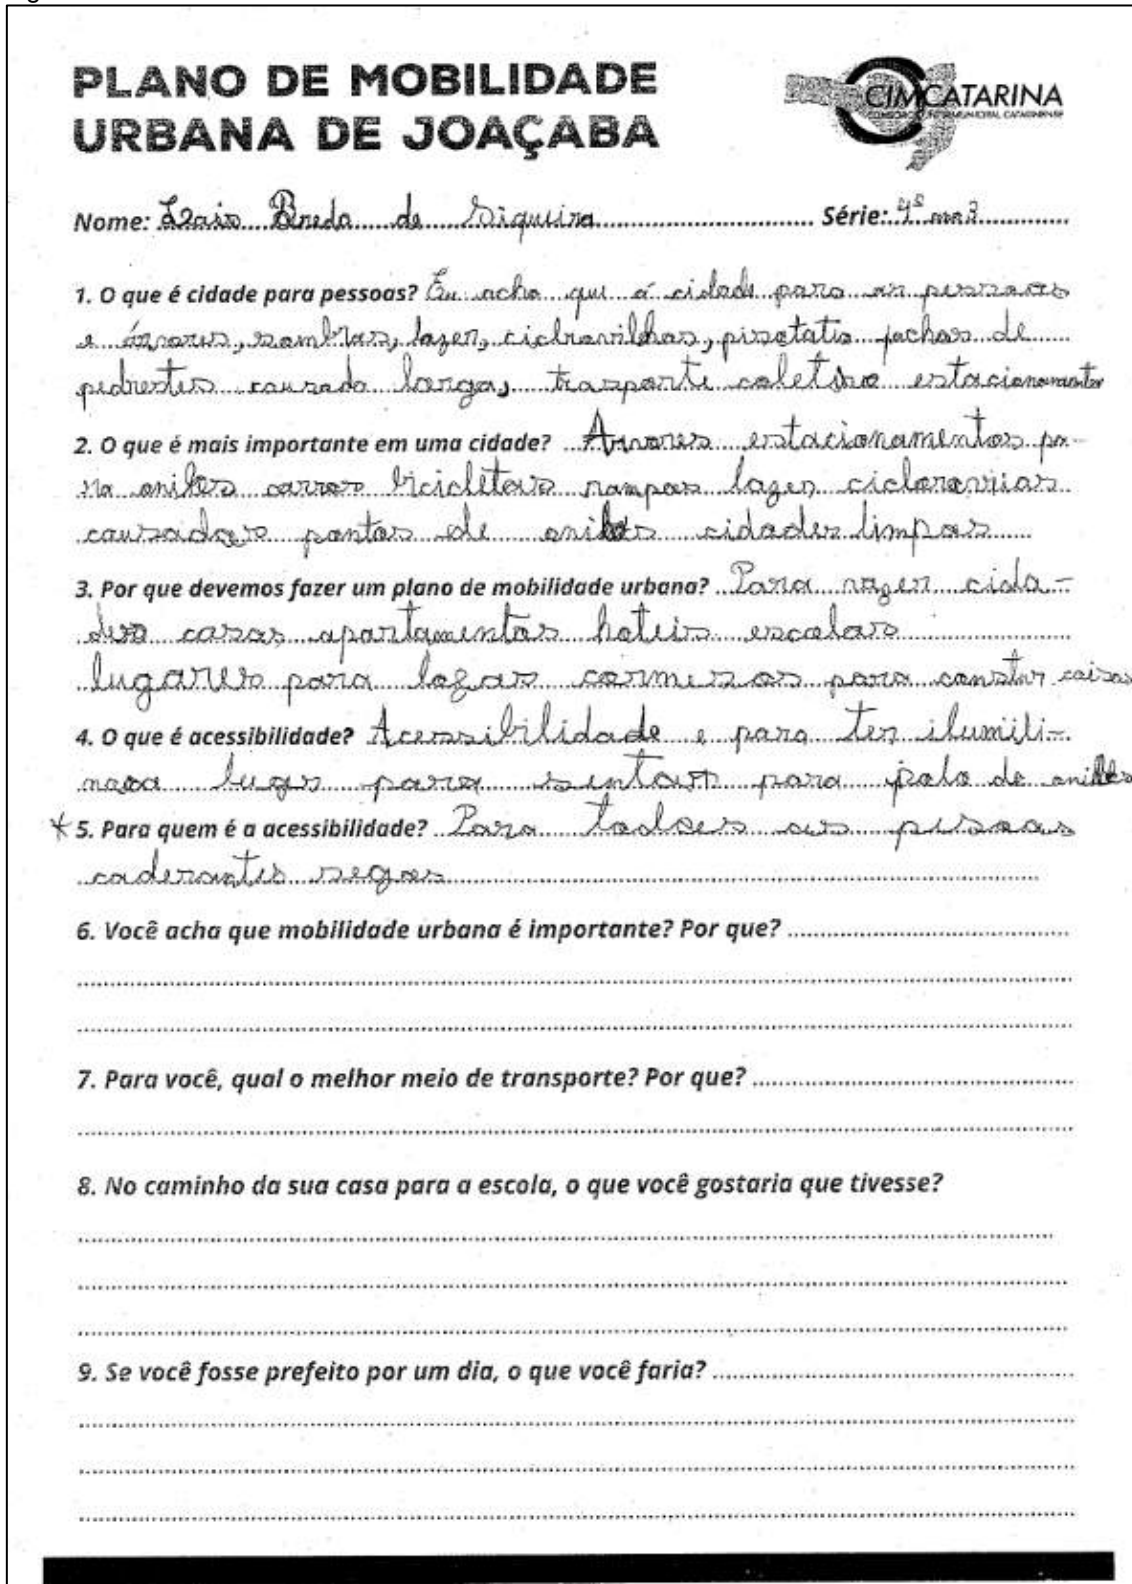 PLANO DE MOBILIDADE
URBANA DE JOAÇABA
CIMCATARINA
CONSÓRCIO INTERMUNICIPAL CATARINENSE
Nome: Lais Breda de Siqueira Série: 4º ano 3
1. O que é cidade para pessoas? Eu acho que á cidade para as pessoas
e árvores, sombras, lazer, piso tatio fachas de
pedrestes causada larga, trasporte coletivo estacionamentos
2. O que é mais importante em uma cidade? Árvores estacionamentos pa-
ra onibos carros bicicletas rampas lazer
causadas pontos de onibos cidades limpas
3. Por que devemos fazer um plano de mobilidade urbana? Para cida-
des casas apartamentos hoteis escolas
lugares para para coisas
4. O que é acessibilidade? Acessibilidade e para ter
lugar para sentar para de onibos
* 5. Para quem é a acessibilidade? Para todas as pesoas
caderantes segos
6. Você acha que mobilidade urbana é importante? Por que?
7. Para você, qual o melhor meio de transporte? Por que?
8. No caminho da sua casa para a escola, o que você gostaria que tivesse?
9. Se você fosse prefeito por um dia, o que você faria?